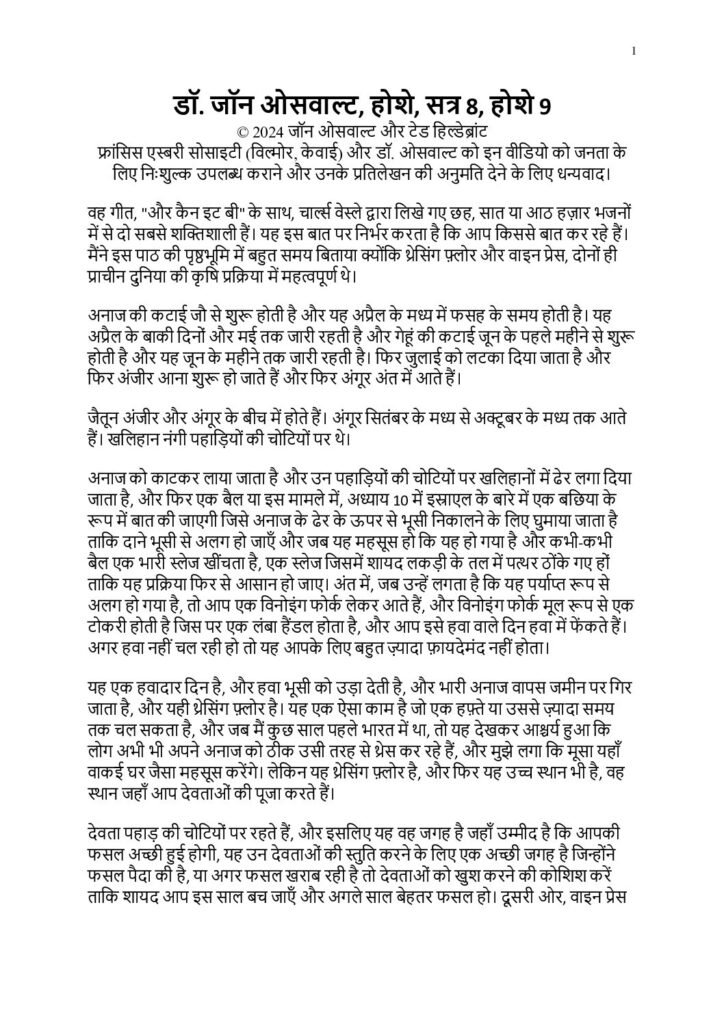 1
डॉ. जॉन ओसवाल्ट, होशे, सत्र 8, होशे 9
© 2024 जॉन ओसवाल्ट और टेड हिल्डेब्रांट
फ्रांसिस एस्बरी सोसाइटी (विल्मोर, केवाई) और डॉ. ओसवाल्ट को इन वीडियो को जनता के
लिए निःशुल्क उपलब्ध कराने और उनके प्रतिलेखन की अनुमति देने के लिए धन्यवाद।
वह गीत, "और कैन इट बी" के साथ, चार्ल्स वेस्ले द्वारा लिखे गए छह, सात या आठ हज़ार भजनों
में से दो सबसे शक्तिशाली हैं। यह इस बात पर निर्भर करता है कि आप किससे बात कर रहे हैं।
मैंने इस पाठ की पृष्ठभूमि में बहुत समय बिताया क्योंकि थ्रेसिंग फ़्लोर और वाइन प्रेस, दोनों ही
प्राचीन दुनिया की कृषि प्रक्रिया में महत्वपूर्ण थे।
अनाज की कटाई जौ से शुरू होती है और यह अप्रैल के मध्य में फसह के समय होती है। यह
अप्रैल के बाकी दिनों और मई तक जारी रहती है और गेहूं की कटाई जून के पहले महीने से शुरू
होती है और यह जून के महीने तक जारी रहती है। फिर जुलाई को लटका दिया जाता है और
फिर अंजीर आना शुरू हो जाते हैं और फिर अंगूर अंत में आते हैं।
जैतून अंजीर और अंगूर के बीच में होते हैं। अंगूर सितंबर के मध्य से अक्टूबर के मध्य तक आते
हैं। खलिहान नंगी पहाड़ियों की चोटियों पर थे।
अनाज को काटकर लाया जाता है और उन पहाड़ियों की चोटियों पर खलिहानों में ढेर लगा दिया
जाता है, और फिर एक बैल या इस मामले में, अध्याय 10 में इस्राएल के बारे में एक बछिया के
रूप में बात की जाएगी जिसे अनाज के ढेर के ऊपर से भूसी निकालने के लिए घुमाया जाता है
ताकि दाने भूसी से अलग हो जाएँ और जब यह महसूस हो कि यह हो गया है और कभी-कभी
बैल एक भारी स्लेज खींचता है, एक स्लेज जिसमें शायद लकड़ी के तल में पत्थर ठोंके गए हों
ताकि यह प्रक्रिया फिर से आसान हो जाए। अंत में, जब उन्हें लगता है कि यह पर्याप्त रूप से
अलग हो गया है, तो आप एक विनोइंग फोर्क लेकर आते हैं, और विनोइंग फोर्क मूल रूप से एक
टोकरी होती है जिस पर एक लंबा हैंडल होता है, और आप इसे हवा वाले दिन हवा में फेंकते हैं।
अगर हवा नहीं चल रही हो तो यह आपके लिए बहुत ज़्यादा फ़ायदेमंद नहीं होता।
यह एक हवादार दिन है, और हवा भूसी को उड़ा देती है, और भारी अनाज वापस जमीन पर गिर
जाता है, और यही थ्रेसिंग फ़्लोर है। यह एक ऐसा काम है जो एक हफ़्ते या उससे ज़्यादा समय
तक चल सकता है, और जब मैं कुछ साल पहले भारत में था, तो यह देखकर आश्चर्य हुआ कि
लोग अभी भी अपने अनाज को ठीक उसी तरह से थ्रेस कर रहे हैं, और मुझे लगा कि मूसा यहाँ
वाकई घर जैसा महसूस करेंगे। लेकिन यह थ्रेसिंग फ़्लोर है, और फिर यह उच्च स्थान भी है, वह
स्थान जहाँ आप देवताओं की पूजा करते हैं।
देवता पहाड़ की चोटियों पर रहते हैं, और इसलिए यह वह जगह है जहाँ उम्मीद है कि आपकी
फसल अच्छी हुई होगी, यह उन देवताओं की स्तुति करने के लिए एक अच्छी जगह है जिन्होंने
फसल पैदा की है, या अगर फसल खराब रही है तो देवताओं को खुश करने की कोशिश करें
ताकि शायद आप इस साल बच जाएँ और अगले साल बेहतर फसल हो। दूसरी ओर, वाइन प्रेस